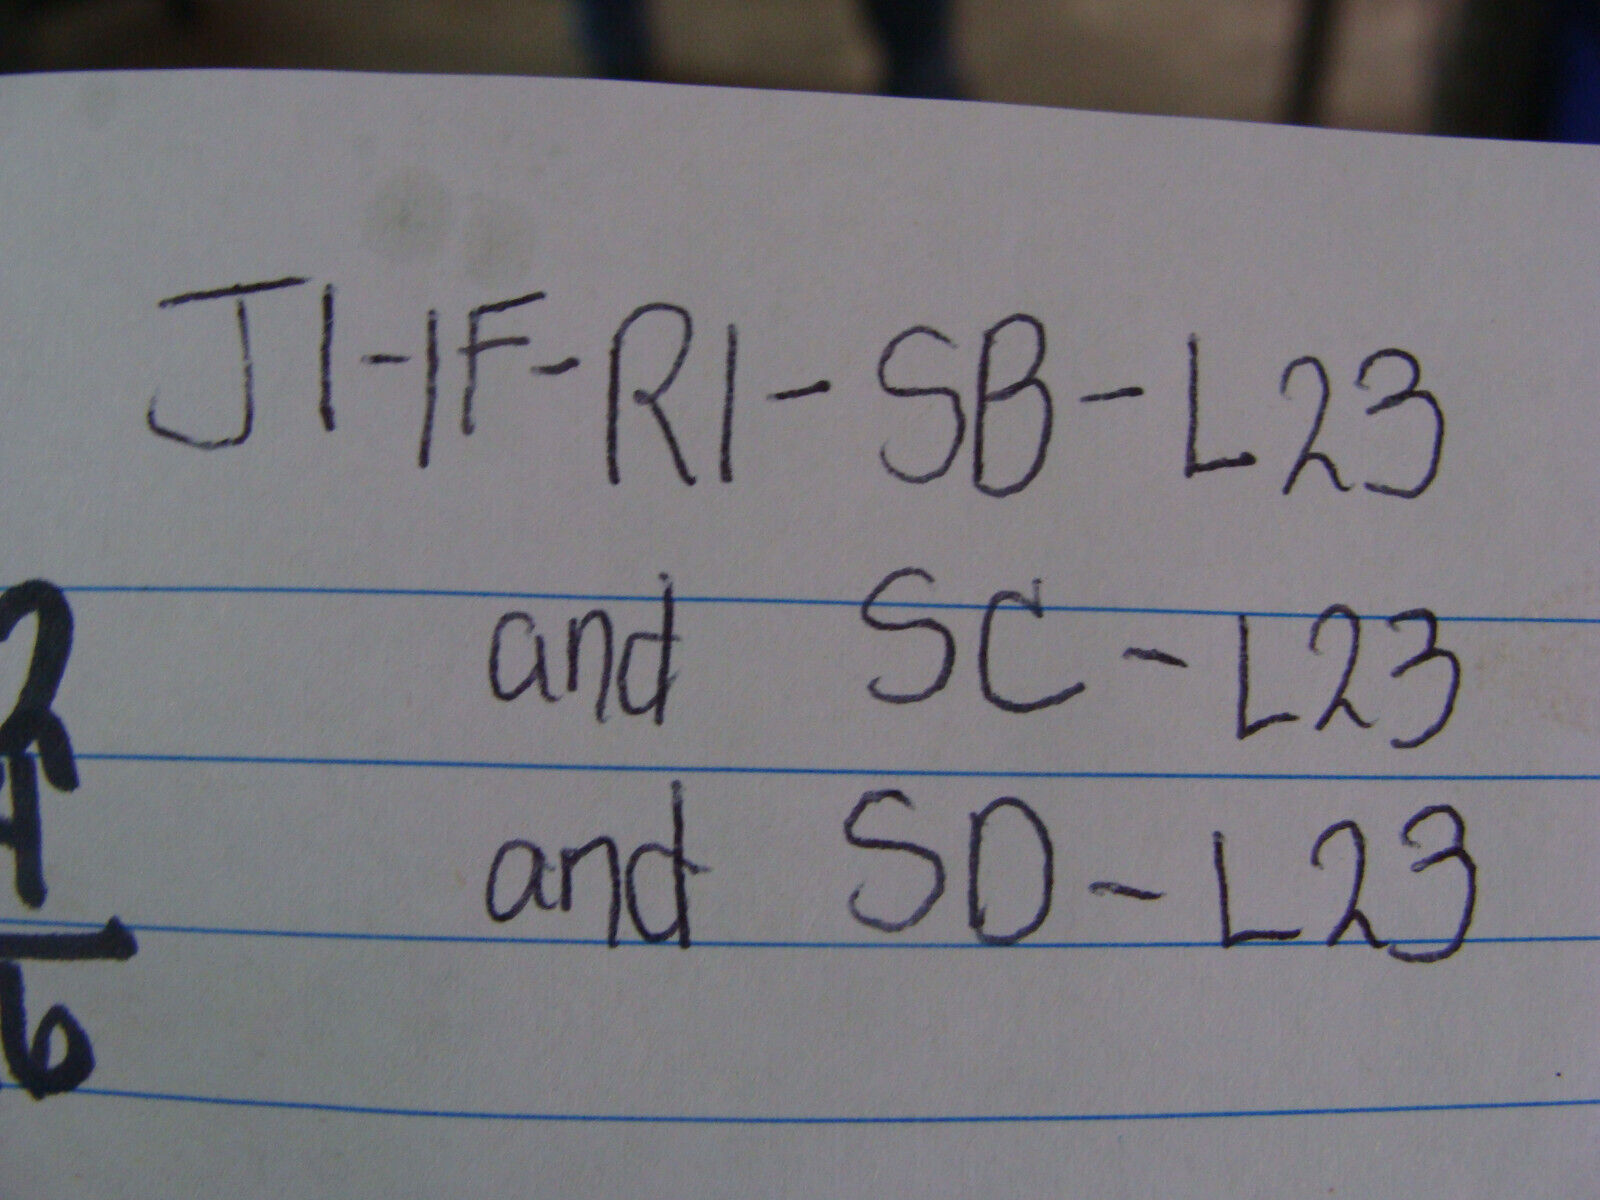 J1-1F-R1-SB-L23
and SC-L23
and SD-L23
2
4
6